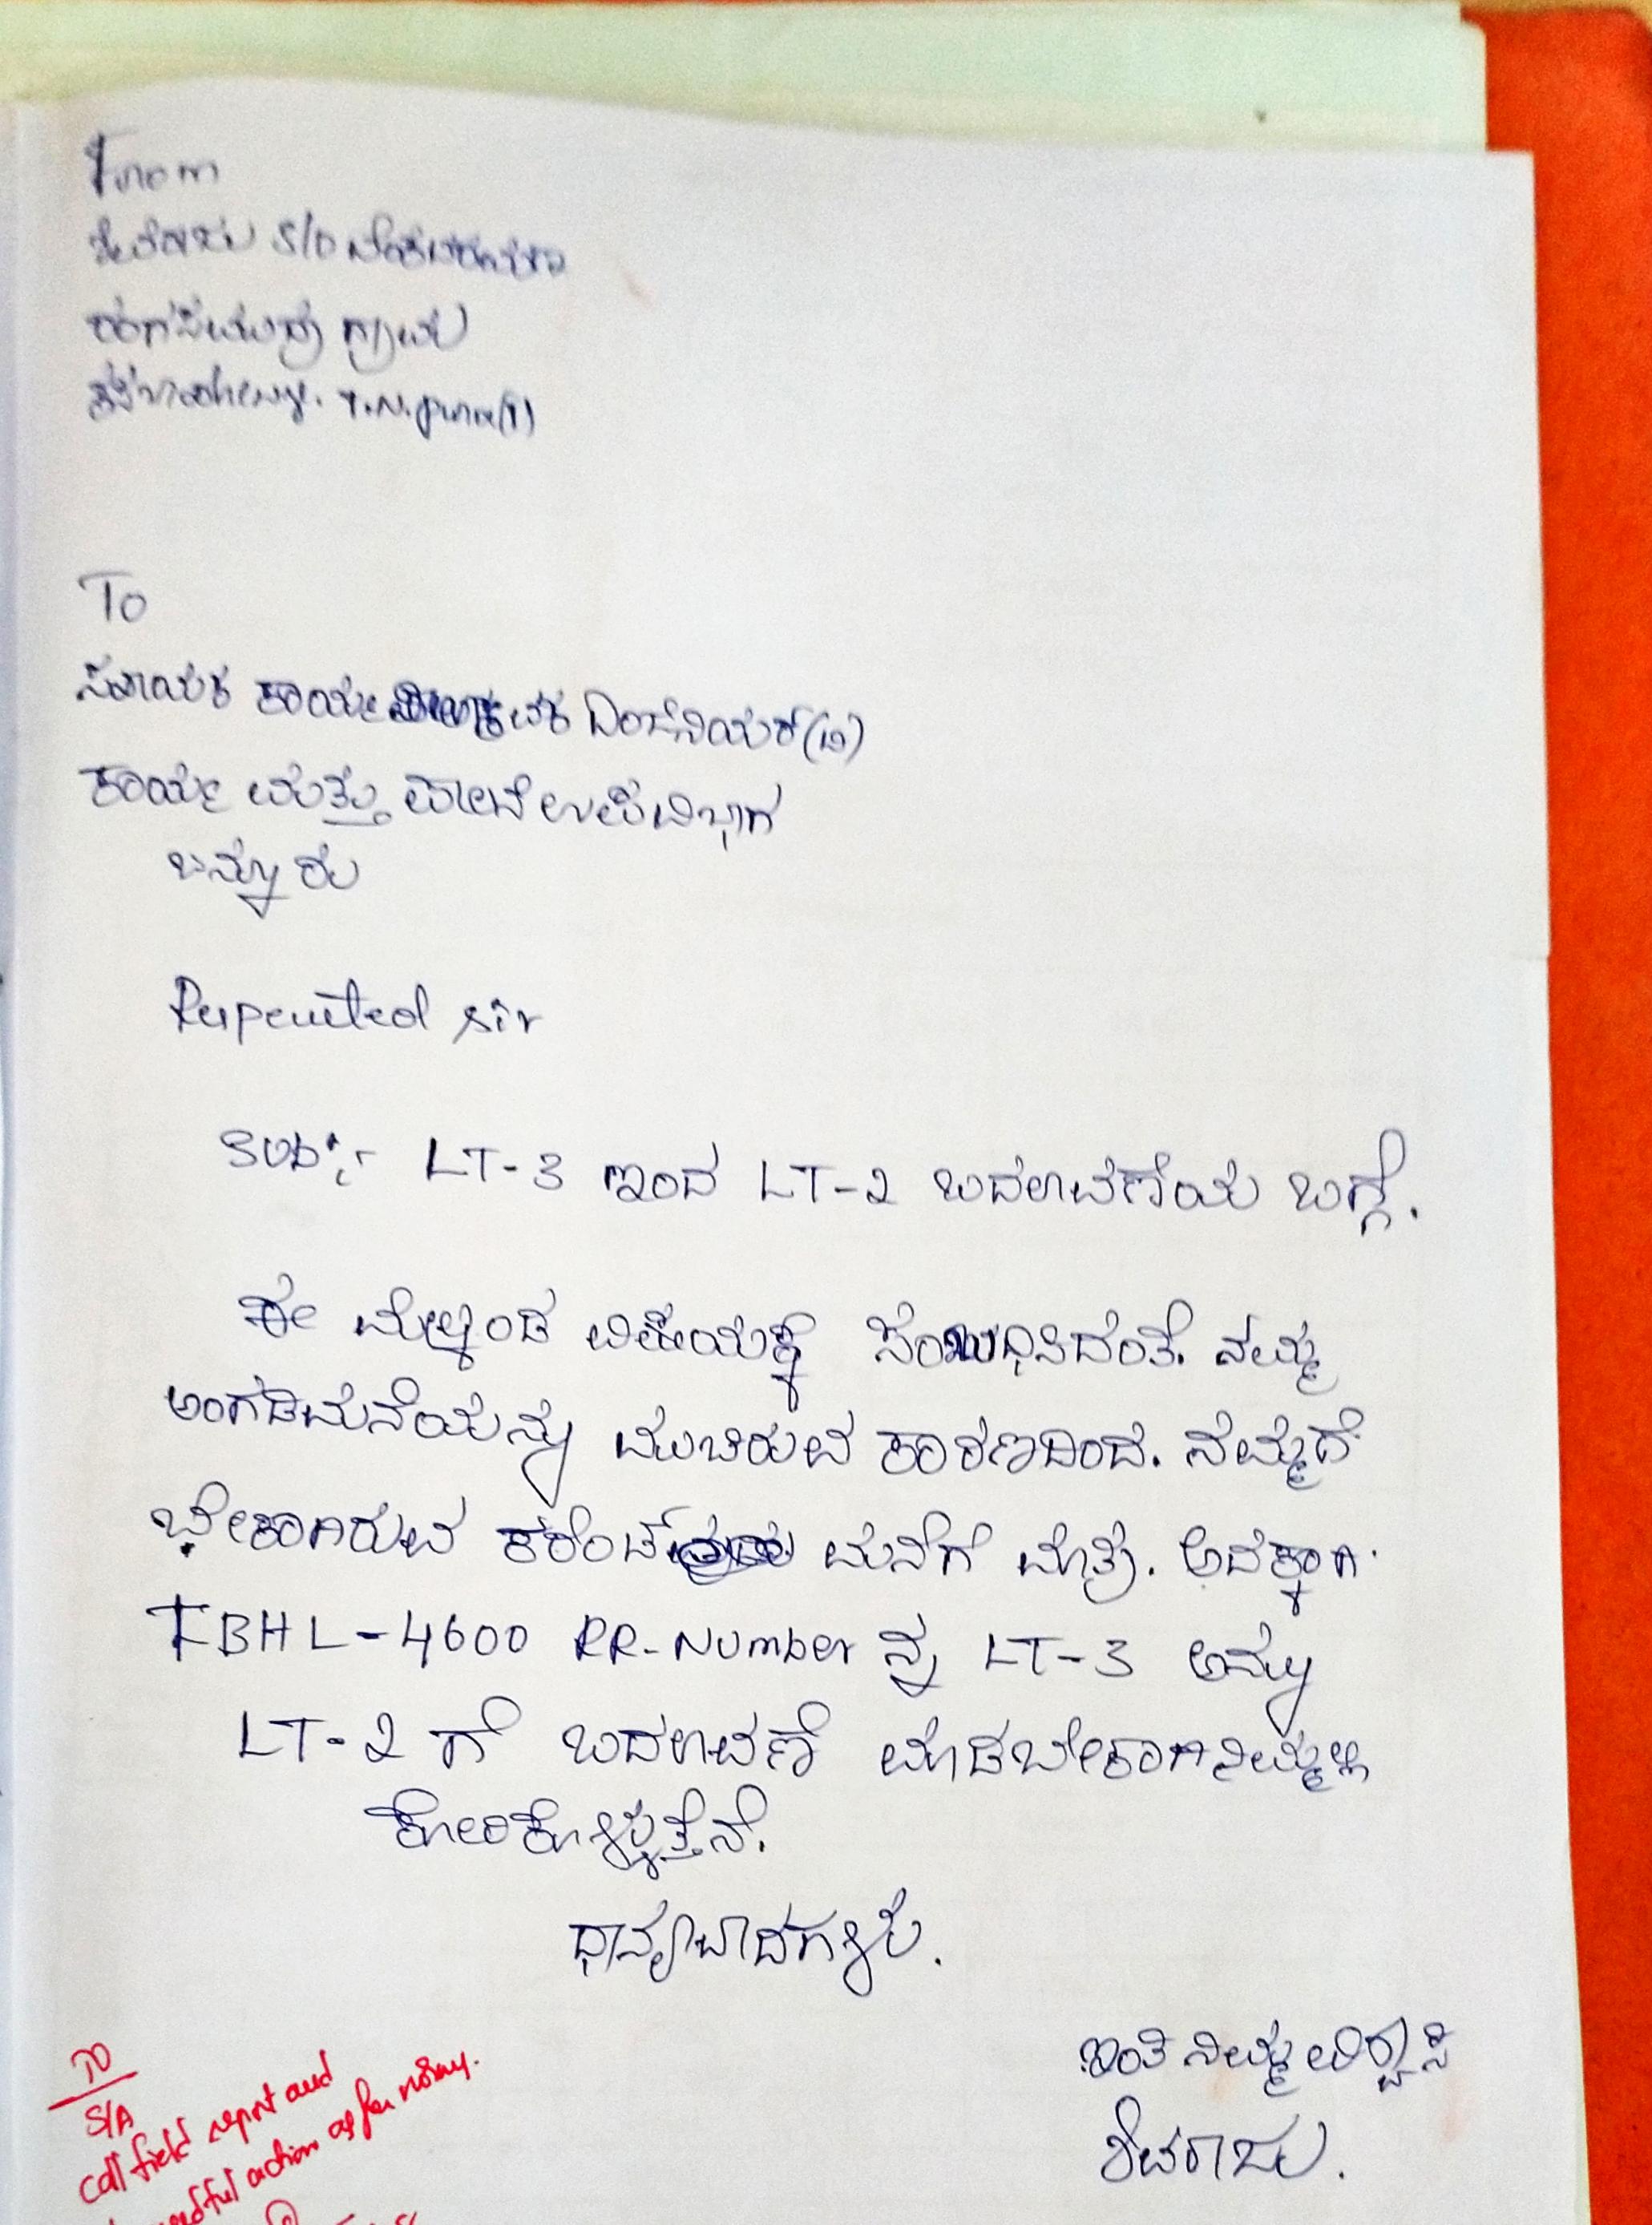 From
S/O
ಗ್ರಾಮ
T.N.pura(T)
To
ಸಹಾಯಕ ಕಾರ್ಯ ಇಂಜಿನಿಯರ್(ವಿ)
ಕಾರ್ಯ ಮತ್ತು ಪಾಲನೆ ಉಪವಿಭಾಗ
ಬನ್ನೂರು
sir
Sub:- LT-3 ಇಂದ LT-2 ಬದಲಾವಣೆಯ ಬಗ್ಗೆ.
ಈ ಮೇಲ್ಕಂಡ ವಿಷಯಕ್ಕೆ ಸಂಬಧಿಸಿದಂತೆ. ನಮ್ಮ
ಅಂಗಡಿಮನೆಯನ್ನು ಮುಚಿರುವ ಕಾರಣದಿಂದ. ನಮ್ಮದೆ
ಬೇಕಾಗಿರುವ ಕರೆಂಟ್ ಮನೆಗೆ ಮಾತ್ರ. ಅದಕ್ಕಾಗಿ
FBHL-4600 RR-Number ನ್ನ LT-3 ಅನ್ನು
LT-2 ಗೆ ಬದಲಾವಣೆ ಮಾಡಬೇಕಾಗಿ ನಿಮ್ಮಲ್ಲಿ
ಕೋರಿಕೊಳ್ಳುತ್ತೆನೆ.
ಧಾನ್ಯವಾದಗಳು.
ಇಂತಿ ನಿಮ್ಮ ವಿಶ್ವಾಸಿ
ಶಿವರಾಜು.
TO
S/A
call field report and
needful action as per norms.